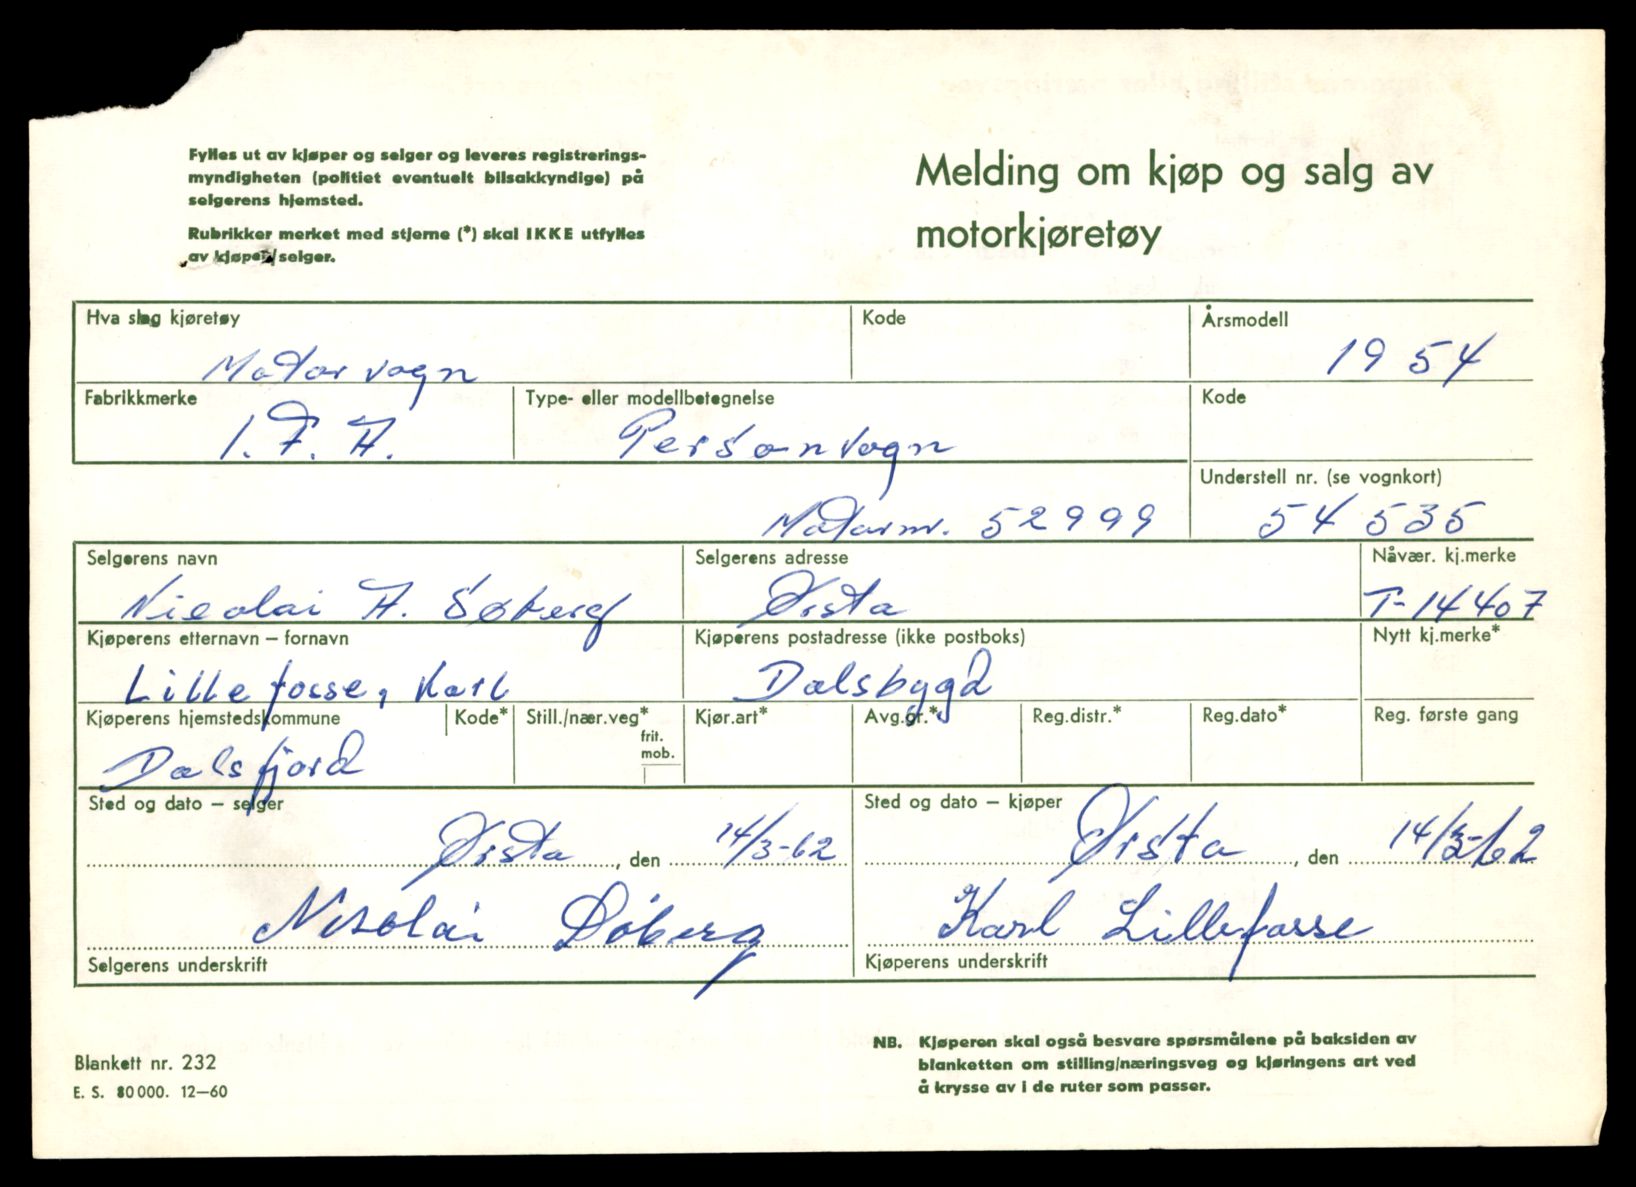 Fylles ut av kjøper og selger og leveres registrerings-
myndigheten (politiet eventuelt bilsakkyndige) på
selgerens hjemsted.
Rubrikker merket med stjerne (*) skal IKKE utfylles
av kjøper/selger.
Melding om kjøp og salg av
motorkjøretøy
Hva slag kjøretøy
Motorvogn
Kode
Årsmodell
1954
Fabrikkmerke
I.F.A.
Type- eller modellbetegnelse
Personvogn
Kode
Motornr. 52999
Understell nr. (se vognkort)
54535
Selgerens navn
Nicolai A. Søberg
Selgerens adresse
Ørsta
Nåvær. kj.merke
T-14407
Kjøperens etternavn – fornavn
Lillefosse, Karl
Kjøperens postadresse (ikke postboks)
Dalsbygd
Nytt kj.merke*
Kjøperens hjemstedskommune
Dalsfjord
Kode*
Still./nær.veg*
frit.
mob.
Kjør.art*
Avg.gr.*
Reg.distr.*
Reg.dato*
Reg. første gang
Sted og dato – selger
Ørsta, den 14/3-62
Nikolai Søberg
Selgerens underskrift
Sted og dato – kjøper
Ørsta, den 14/3-62
Karl Lillefosse
Kjøperens underskrift
Blankett nr. 232
E. S. 80 000. 12–60
NB. Kjøperen skal også besvare spørsmålene på baksiden av
blanketten om stilling/næringsveg og kjøringens art ved
å krysse av i de ruter som passer.